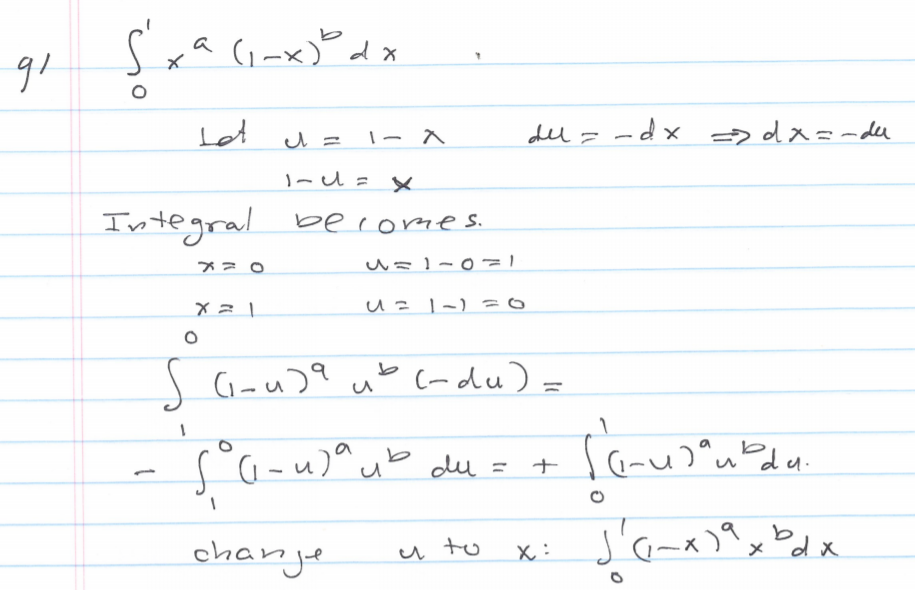 91 ∫₀¹ xᵃ (1-x)ᵇ dx .
Let u = 1 - x du = -dx ⇒ dx = -du
1-u = x
Integral becomes.
x = 0 u = 1-0 = 1
x = 1 u = 1-1 = 0
∫₁⁰ (1-u)ᵃ uᵇ (-du) =
- ∫₁⁰ (1-u)ᵃ uᵇ du = + ∫₀¹ (1-u)ᵃ uᵇ du.
change u to x: ∫₀¹ (1-x)ᵃ xᵇ dx